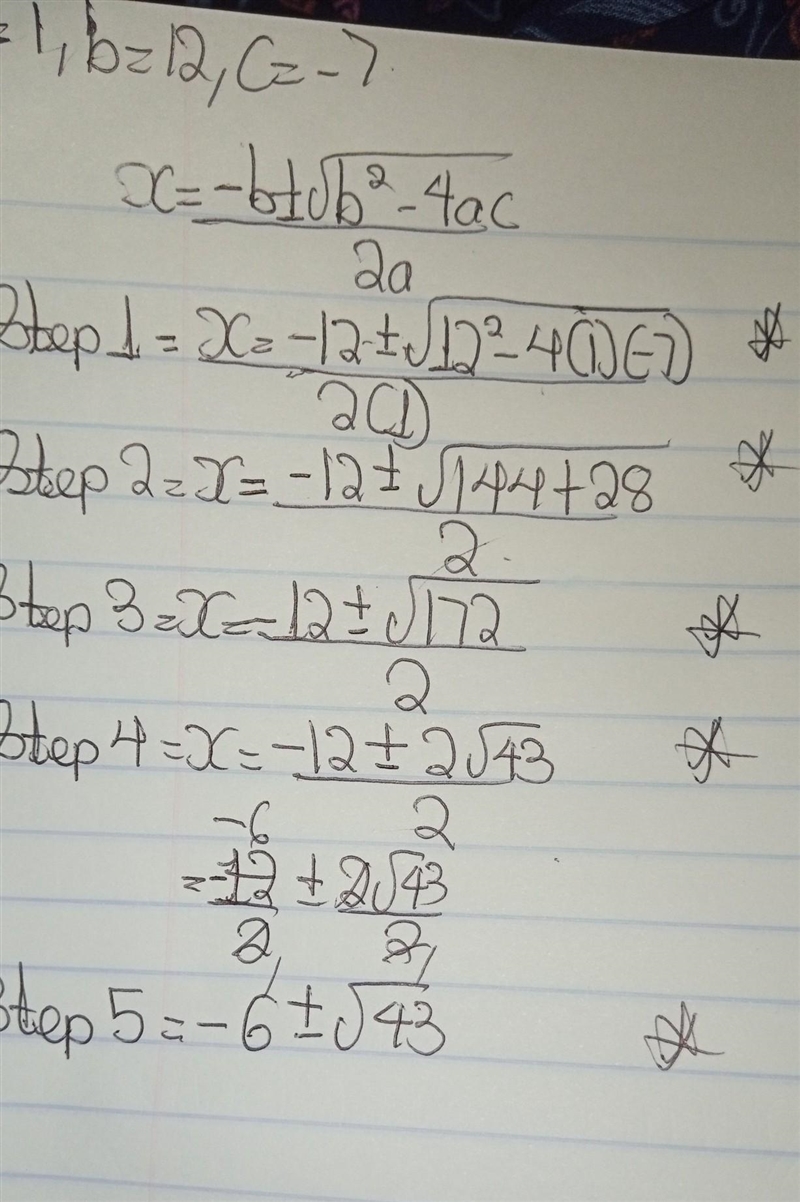 = 1, b = 12, c = -7.
x = -b ± √b² - 4ac
2a
Step 1 = x = -12 ± √12² - 4(1)(-7) *
2(1)
Step 2 = x = -12 ± √144 + 28 *
2
Step 3 = x = -12 ± √172 *
2
Step 4 = x = -12 ± 2√43 *
2
-6
= -12 ± 2√43
2 2
Step 5 = -6 ± √43 *